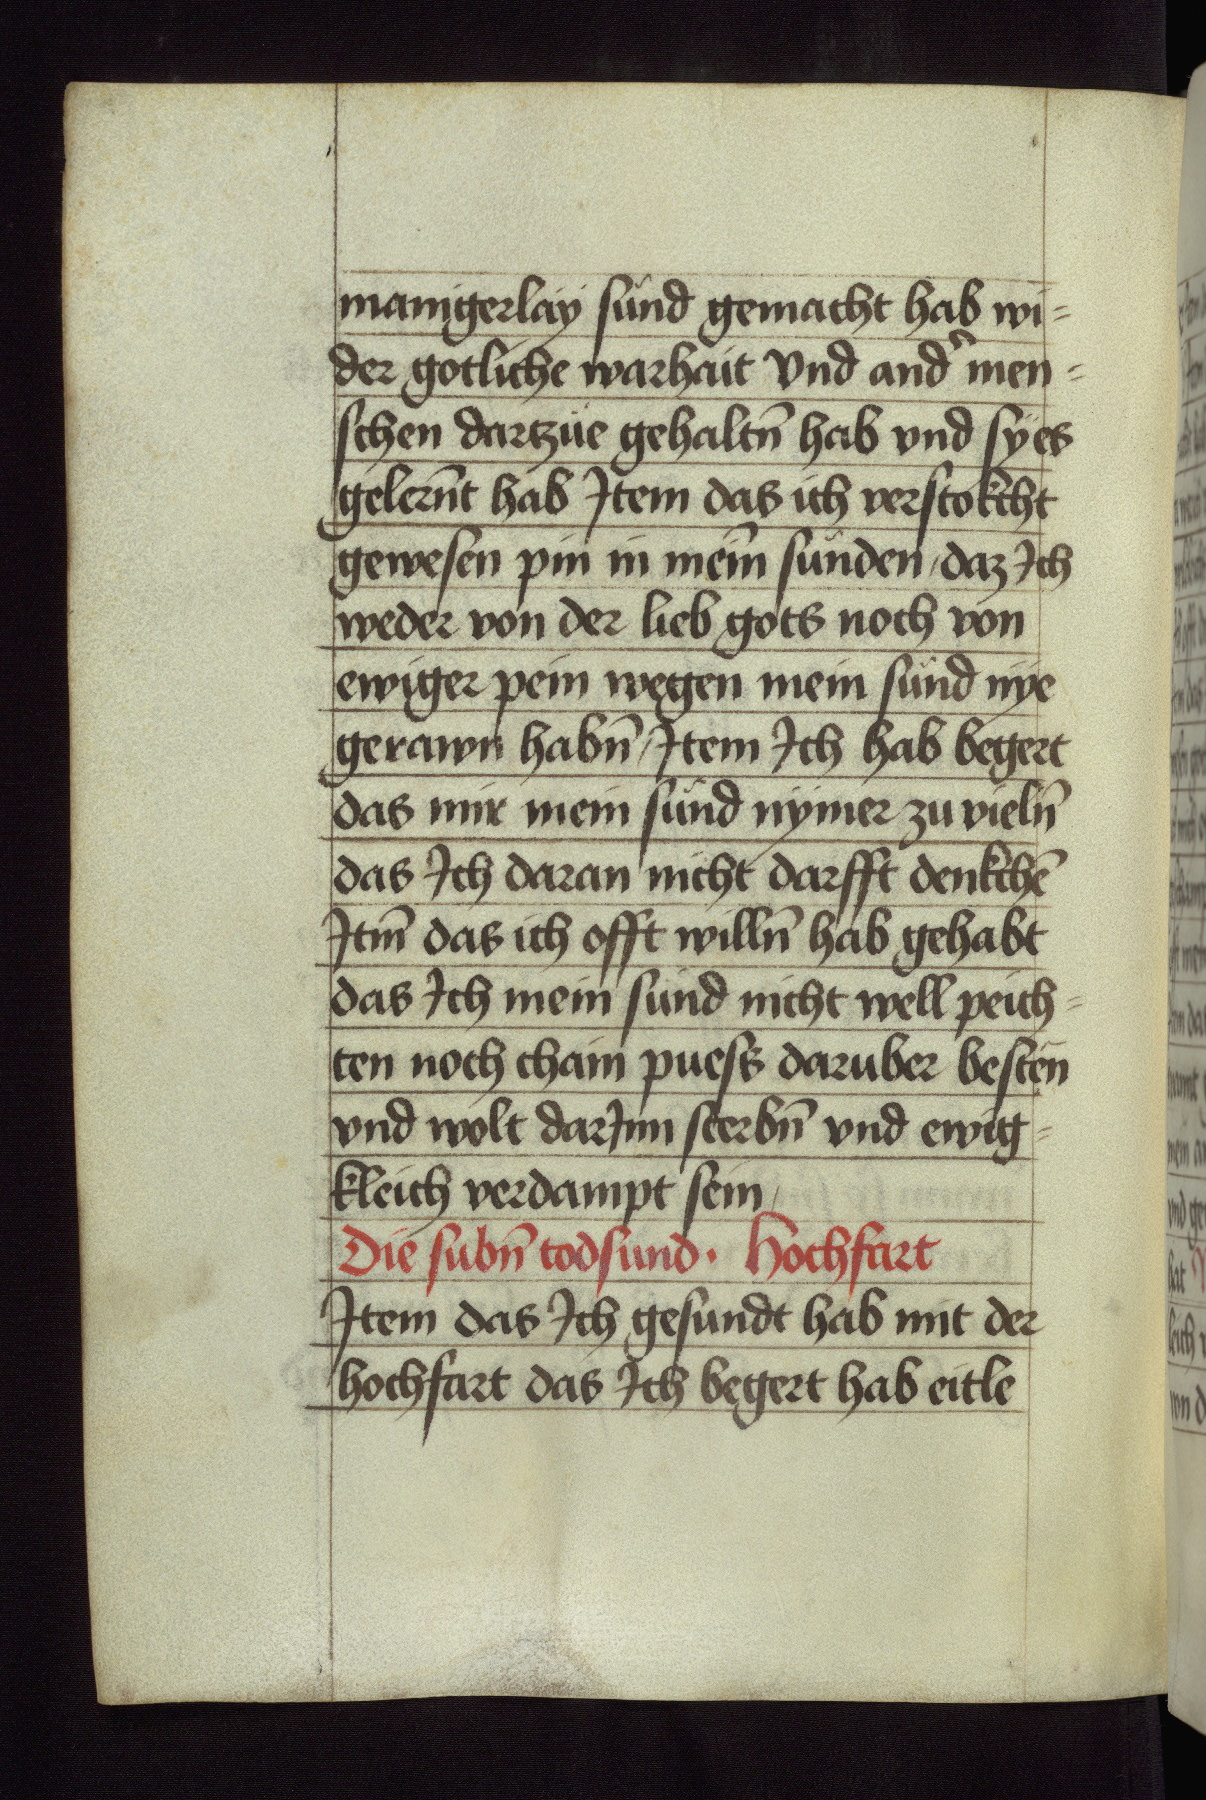 manigerlay sünd gemacht hab wi-
der gotliche warhait Vnd and' men-
schen dartzüe gehaltn̄ hab vnd sy es
gelernt̄ hab Item das ich verstokcht
gewesen pin in mein̄ sünden / daz Ich
weder von der lieb gots noch von
ewiger pein wegen mein sünd nye
gerawn habn̄ / Item Ich hab begert
das mir mein sünd nymer zu vieln̄
das Ich daran nicht darfft denkchē
Itm̄ das ich offt willn̄ hab gehabt
das Ich mein sünd nicht well peich-
ten noch chain puess daruber besten
vnd wolt darInn sterbn̄ vnd ewig-
kleich verdampt sein /
Die subn̄ todsund · Hochfart
Item das Ich gesundt hab mit der
hochfart das Ich begert hab eitle